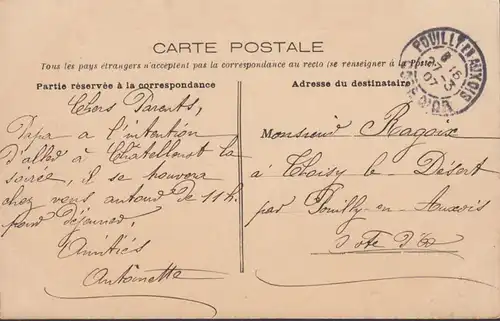 CARTE POSTALE
Tous les pays étrangers n'acceptent pas la correspondance au recto (se renseigner à la Poste).
Partie réservée à la correspondance
Adresse du destinataire
POUILLY-EN-AUXOIS
CÔTE-D'OR
Chers Parents,
Papa a l'intention
d'aller à Chatellenot la
soirée, il se trouvera
chez vous autour de 11h.
pour déjeuner,
Amitiés
Antoinette
Monsieur
à Thoisy le Désert
par Pouilly-en-Auxois
Côte d'Or